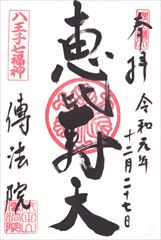 奉拝
令和元年
十二月二十七日
恵比寿天
八王子七福神
傳法院